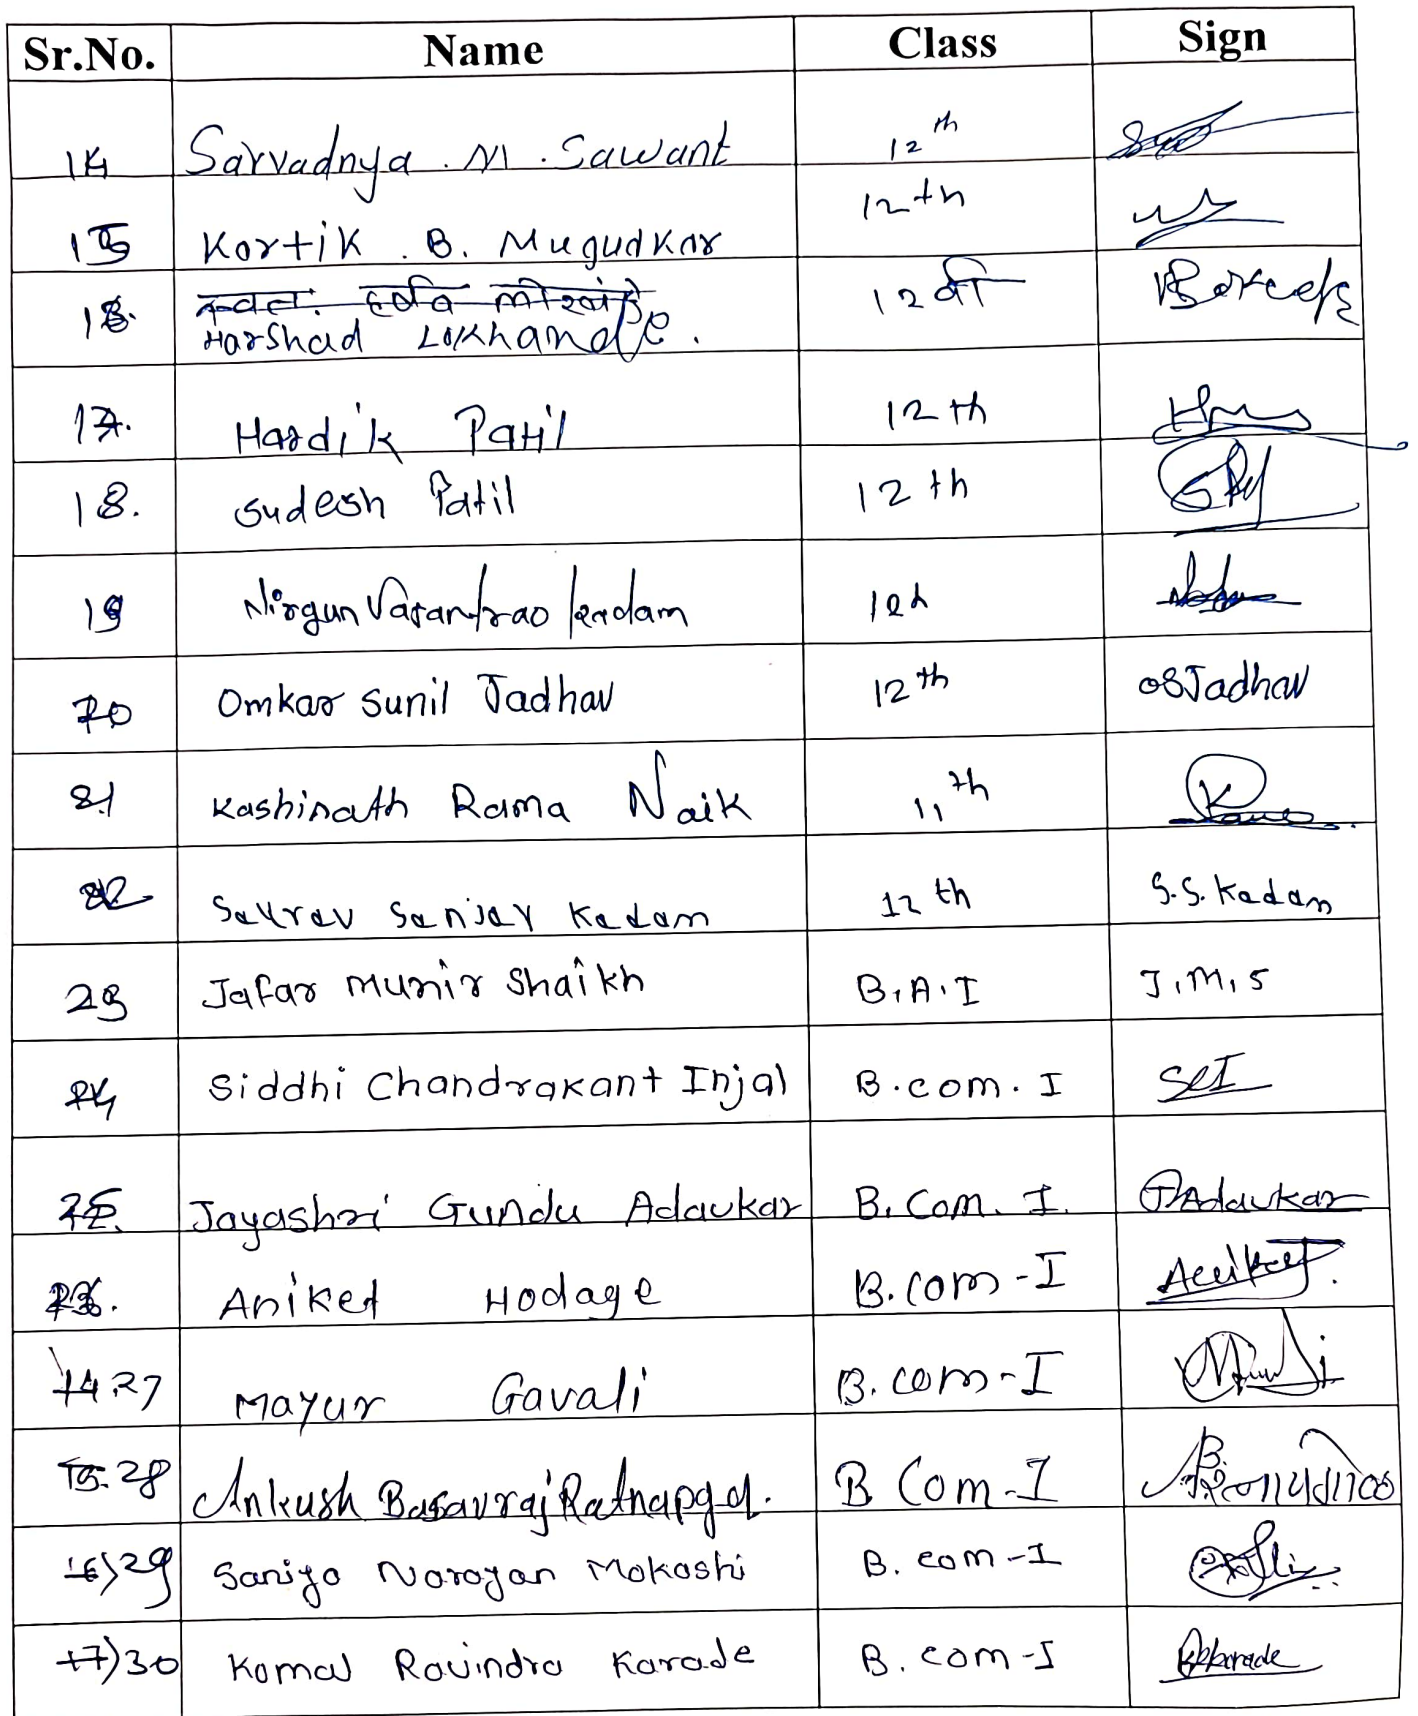 Sr.No. Name Class Sign
14 Sarvadnya . M . Sawant 12th
15 Kartik . B. Mugudkar 12th
12 वी
Harshad Lokhande.
17. Hardik Patil 12th
18. Sudesh Patil 12th
19 Nirgun Vasantrao Kadam
20 Omkar Sunil Jadhav 12th OSJadhav
21 Kashinath Rama Naik 11th
22 Saurav Sanjay Kadam 12th S.S. Kadam
23 Jafar Munir Shaikh B.A.I J.M.S
24 Siddhi Chandrakant Injal B.com. I SCI
25. Jayashri Gundu Adavkar B. Com. I. GAdavkar
26. Aniket Hodage B.com-I Aniket.
14 27 Mayur Gavali B.com-I
15. 28 Ankush Basavraj B Com-I
16) 29 Saniya Narayan Mokashi B. com-I
17) 30 Komal Ravindra Karade B. com-I